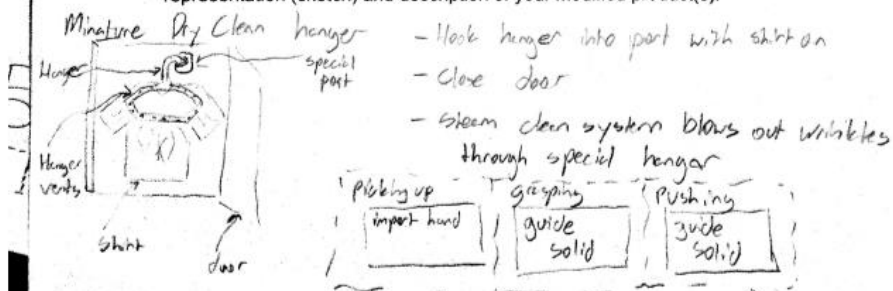 representation (sketch) and description of your modified product(s).
Minature Dry Clean hanger
Hanger
special port
Hanger vents
shirt
door
- Hook hanger into port with shirt on
- Close door
- Steam clean system blows out wrinkles
through special hangar
picking up
import hand
grasping
guide
solid
pushing
guide
solid